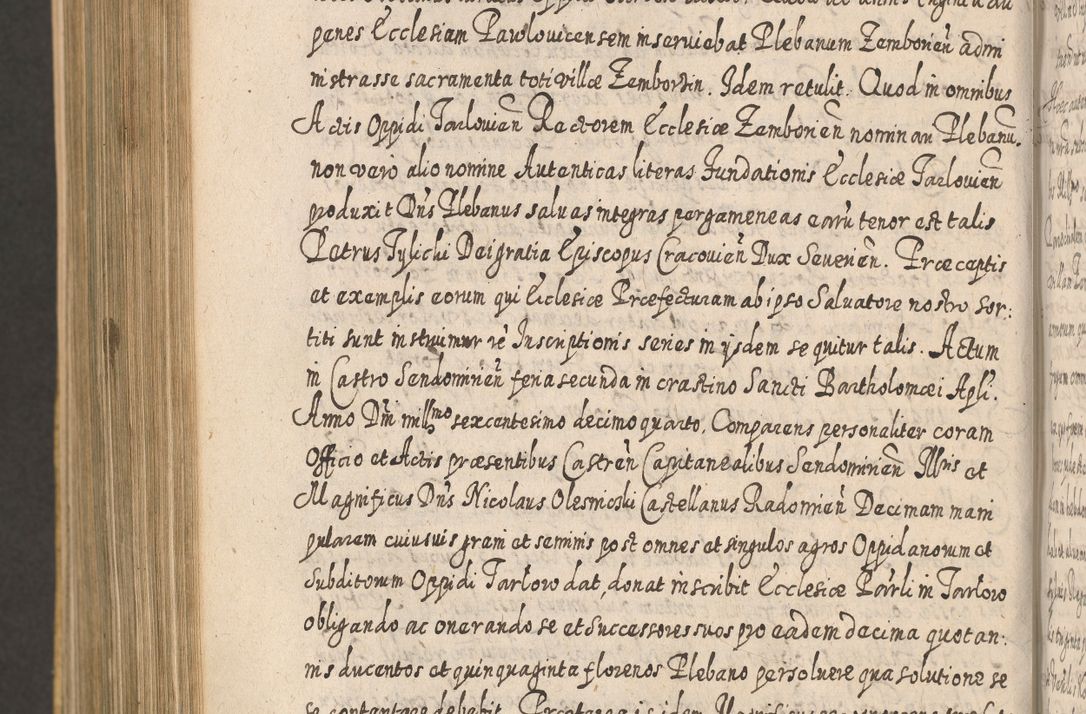 penes Ecclesiam Pawlouicensem inseruiebat Plebanum Zemborień admi
nistrasse sacramenta toti villæ Zemborzin. Idem retulit. Quod in omnibus
Actis Oppidi Tarlouień Ractorem Ecclesiæ Zemborień nominan Plebanū.
non vero alio nomine Autenticas literas Fundationis Ecclesiæ Tarlouień
produxit Dñs Plebanus saluas integras pergameneas earū tenor est talis
Petrus Tylicki Dei gratia Episcopus Cracouień Dux Seuerień. Præceptis
et exemplis eorum qui Ecclesiæ Præfecturam ab ipso Saluatore nostro sor:
titi sunt instruimur Inscriptionis series in ijsdem sequitur talis. Actum
in Castro Sendomirień feria secunda in crastino Sancti Bartholomæi Apli.
Anno Dñi millmo sexcentesimo decimo quarto. Comparens personaliter coram
Officio et Actis præsentibus Castreń Capitanealibus Sendomirień Illris et
Magnificus Dñs Nicolaus Olesnicski Castellanus Radomień Decimam mani
pularem cuiusuis grani et seminis post omnes et singulos agros Oppidanorum et
Subditorum Oppidi Tarłowo dat, donat inscribit Ecclesiæ Parłi in Tarłowo
obligando ac onerando se et Successores suos pro eadem decima quotan:
nis ducentos et quinquaginta florenos Plebano persoluere qua solutione se